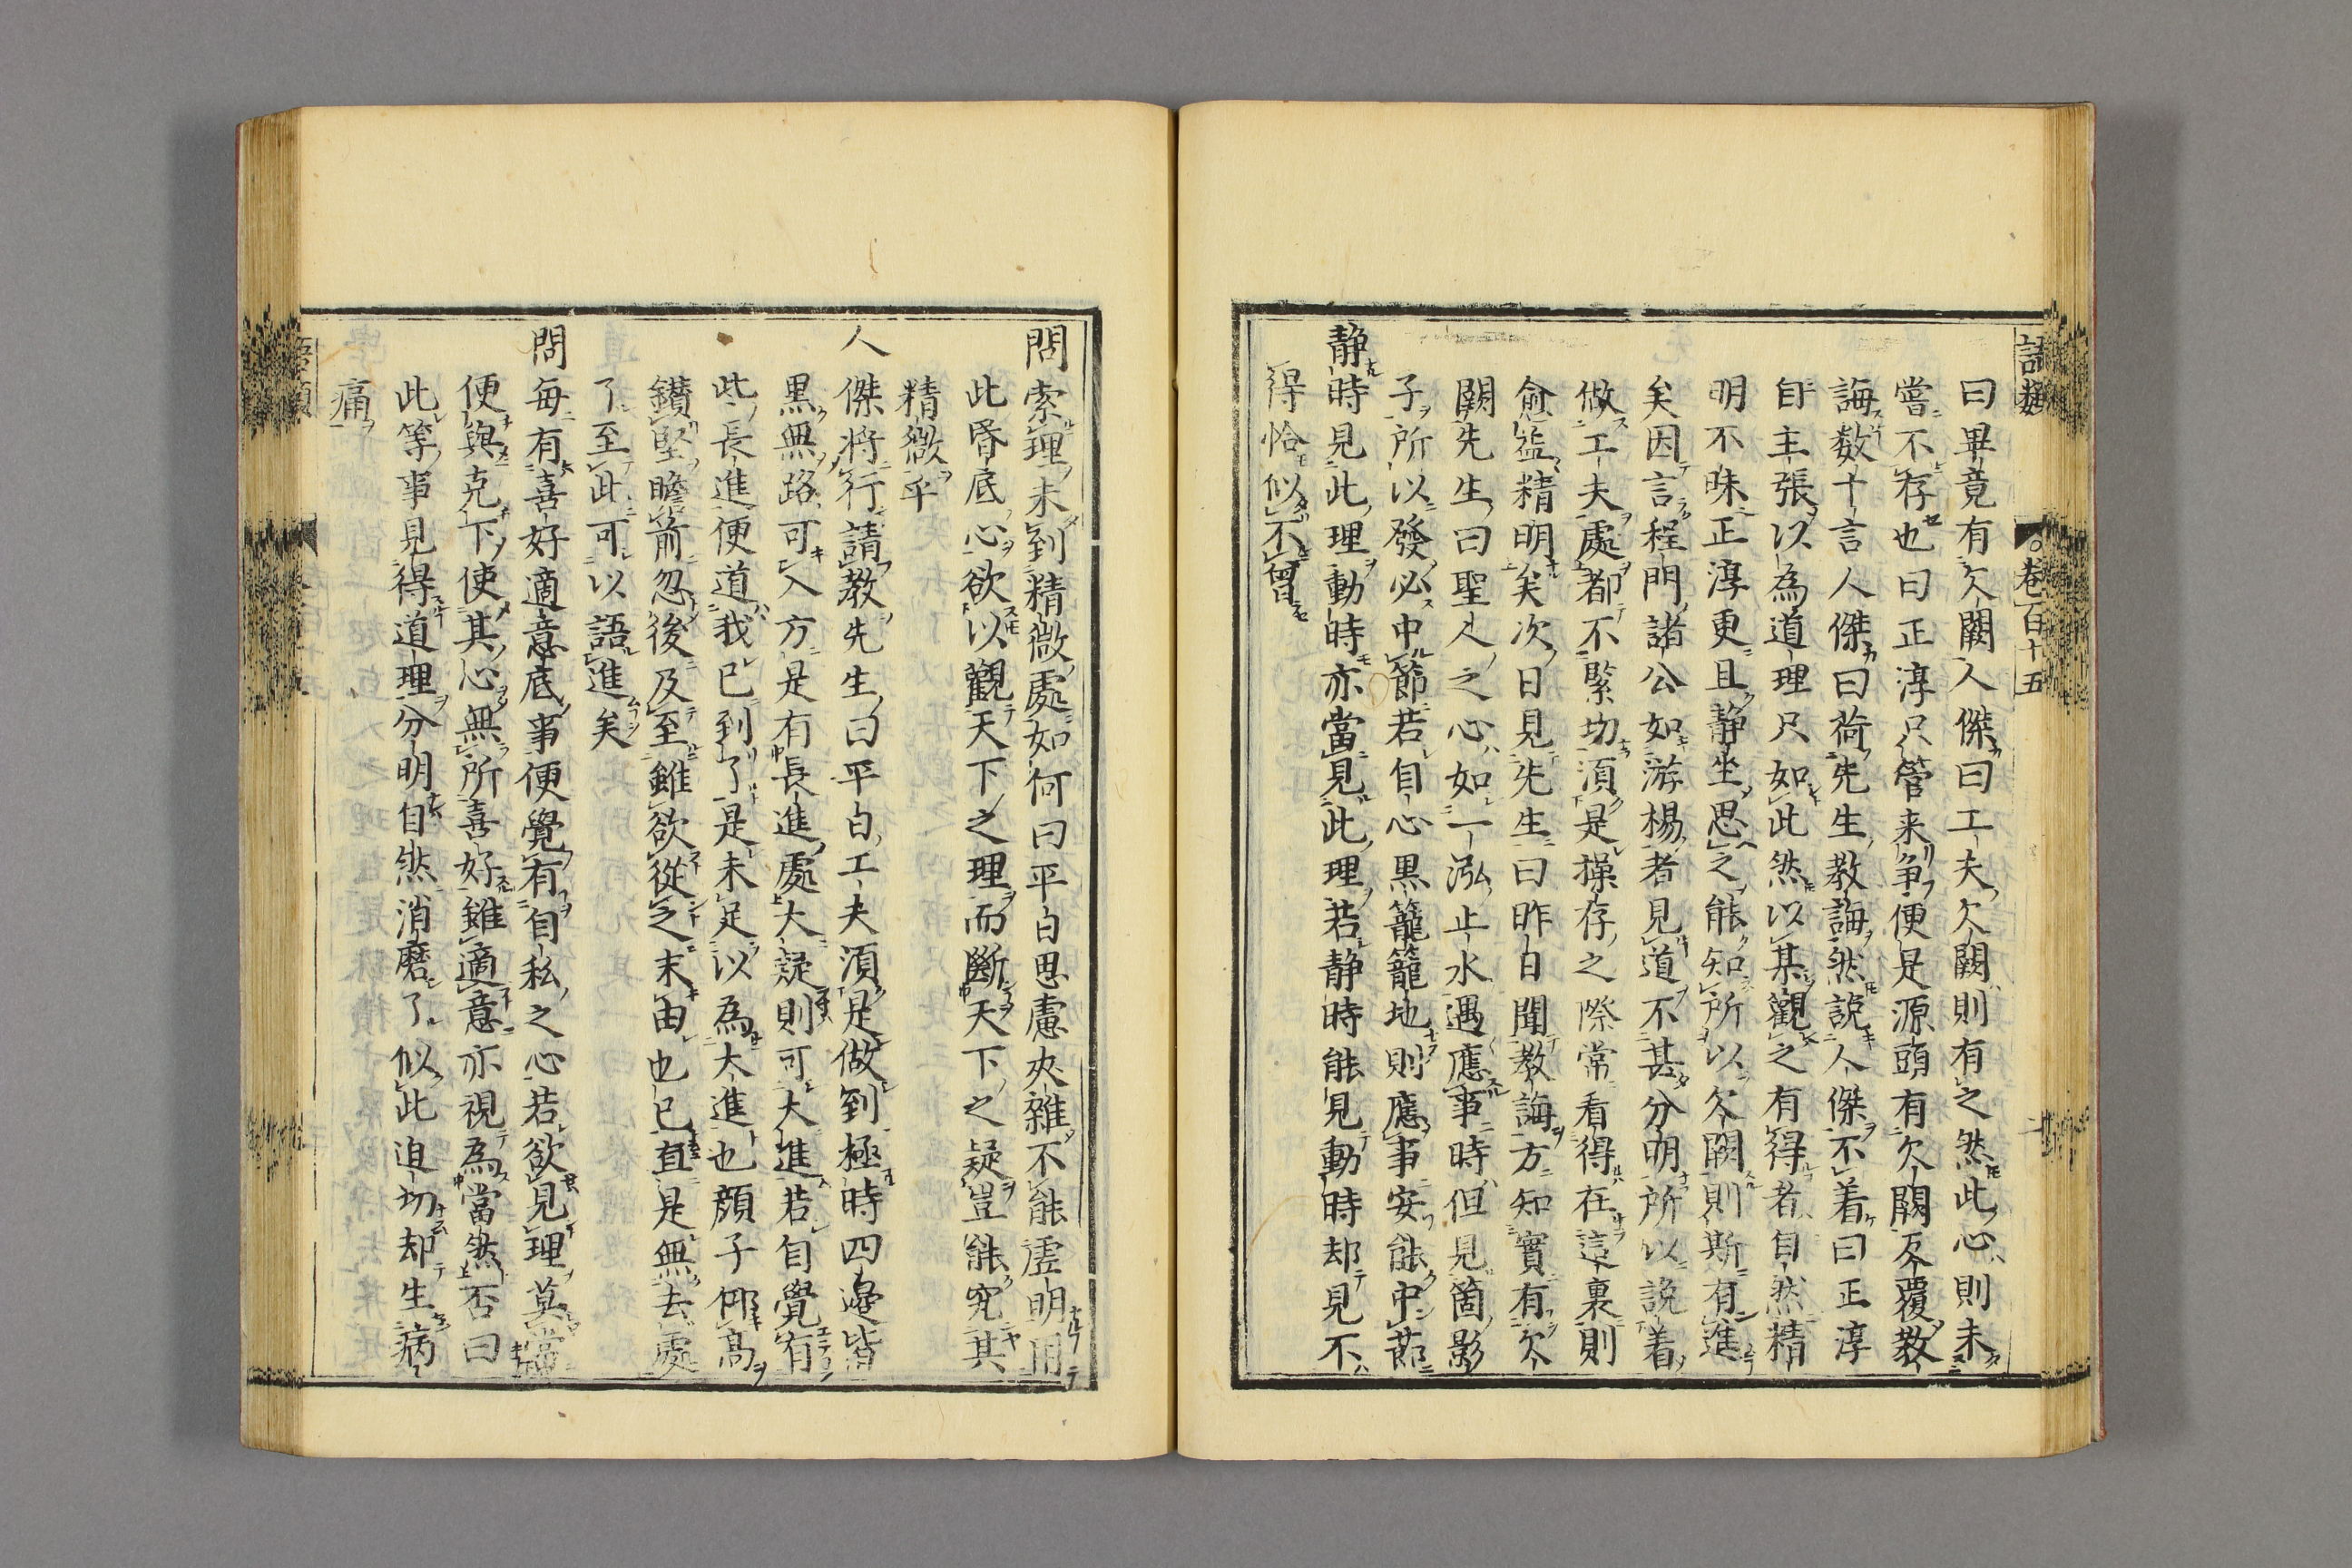 語類 卷百十五
曰畢竟有欠闕人傑曰工夫欠闕則有之然此心則未
嘗不存也曰正淳只管来争便是源頭有欠闕反覆教
誨数十言人傑曰荷先生教誨然説人傑不着曰正淳
自主張以為道理只如此然以某觀之有得者自然精
明不昧正淳更且静坐思之能知所以欠闕則斯有進
矣因言程門諸公如游楊者見道不甚分明所以説着
做工夫處都不緊切須是操存之際常看得在這裏則
愈益精明矣次日見先生曰昨日聞教誨方知實有欠
闕先生曰聖人之心如一泓止水遇應事時但見箇影
子所以發必中節若自心黒籠籠地則應事安能中節
静時見此理動時亦當見此理若静時能見動時却見不
得恰似不曾
問索理未到精微處如何曰平日思慮夾雜不能虚明用
此昏底心欲以觀天下之理而斷天下之疑豈能究其
精微乎
人傑将行請教先生曰平日工夫須是做到極時四邉皆
黒無路可入方是有長進處大疑則可大進若自覺有
此長進便道我已到了是未足以為大進也顔子仰髙
鑚堅瞻前忽後及至雖欲從之末由也已直是無去處
了至此可以語進矣
問毎有喜好適意底事便覺有自私之心若欲見理莫當
便與克下使其心無所喜好雖適意亦視為當然否曰
此等事見得道理分明自然消磨了似此迫切却生病
痛